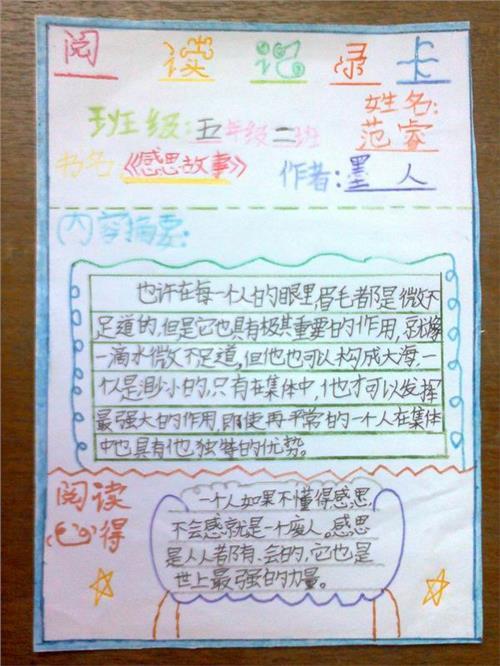 阅读记录卡
姓名:
班级:五年级二班 范睿
书名:《感思故事》 作者:墨人
内容摘要:
也许在每一个人的眼里,眉毛都是微不
足道的,但是它也具有极其重要的作用,就像
一滴水微不足道,但他也可以构成大海,一
人是渺小的,只有在集体中,他才可以发挥
最强大的作用,即使再平常的一个人在集体
中也具有他独特的优势。
阅读
心得
一个人如果不懂得感思,
不会感就是一个废人。感思
是人人者都有、会的,它也是
世上最强的力量。